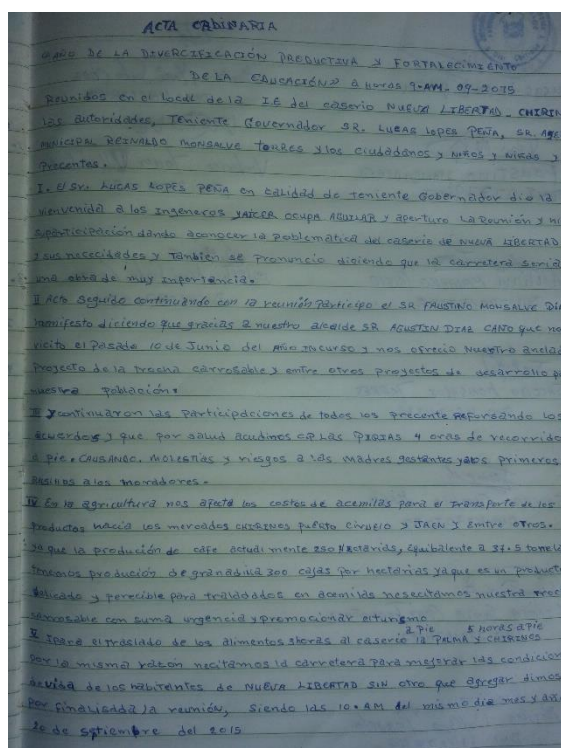 ACTA ORDINARIA
DE LA DIVERCIFICACIÓN PRODUCTIVA Y FORTALECIMIENTO
DE LA EDUCACIÓN A HORAS 9-AM- 09-2015
Reunidos en el Local de la IE del caserio NUEVA LIBERTAD - CHIRIN
las autoridades, TENIENTE GOVERNADOR SR. LUCAS LOPES PEÑA, SR. AGE
MUNICIPAL REINALDO MONSALVE TORRES y los ciudadanos y NIÑOS y NIÑAS y
Precentes.
I. El Sr. LUCAS LOPES PEÑA en calidad de teniente Gobernador dio la
vienvenida a los Ingeneros OCUPA AGUILAR y aperturo la Reunión y
participación dando aconocer la problematica del caserio de NUEVA LIBERTAD
y sus nececidades y Tanbien se pronuncio disiendo que la carretera seria
una obra de muy inportancia.
II Acto seguido continuando con la reunión Participo el SR FAUSTINO MONSALVE DIA
manifesto diciendo que gracias a nuestro alcalde SR AGUSTIN DIAZ CANO que no
vicito el Pasado 10 de Junio del AÑO INCURSO y nos ofrecio Nuestro
Projecto de la trocha carrosable y entre otros proyectos de desarrollo p
nuestra poblacion.
III y continuaron las participaciones de todos los precente REFORSANDO Los
acuerdos y que por salud acudimos LAS PIRIAS 4 oras de recorrido
a pie. CAUSANDO. MOLESTIAS y riesgos a las madres gestantes y primeros
a los moradores.
IV En la agricultura nos afecta los costos de acemilas para el Transporte de los
productos hacia los mercados CHIRINOS PUERTO CIRUELO Y JAEN Y Entre otros.
ya que la produción de cafe 250 Hectarias, Equibalente a 37.5 tonela
tenemos produción de granadilla 300 cajas por hectarias ya que es un product
delicado y perecible para en acemilas nesecitamos nuestra troc
carrosable con suma urgencia y promocionar el turismo
a pie 5 horas a pie
V Para el traslado de los alimentos 3horas al caserio la PALMA Y CHIRINOS
por la misma razon la carretera para mejorar las condicion
de vida de los habitantes de NUEVA LIBERTAD SIN otro que agregar dimos
por finalisada la reunión, siendo las 10.AM del mismo dia mes y
20 de septiembre del 2015